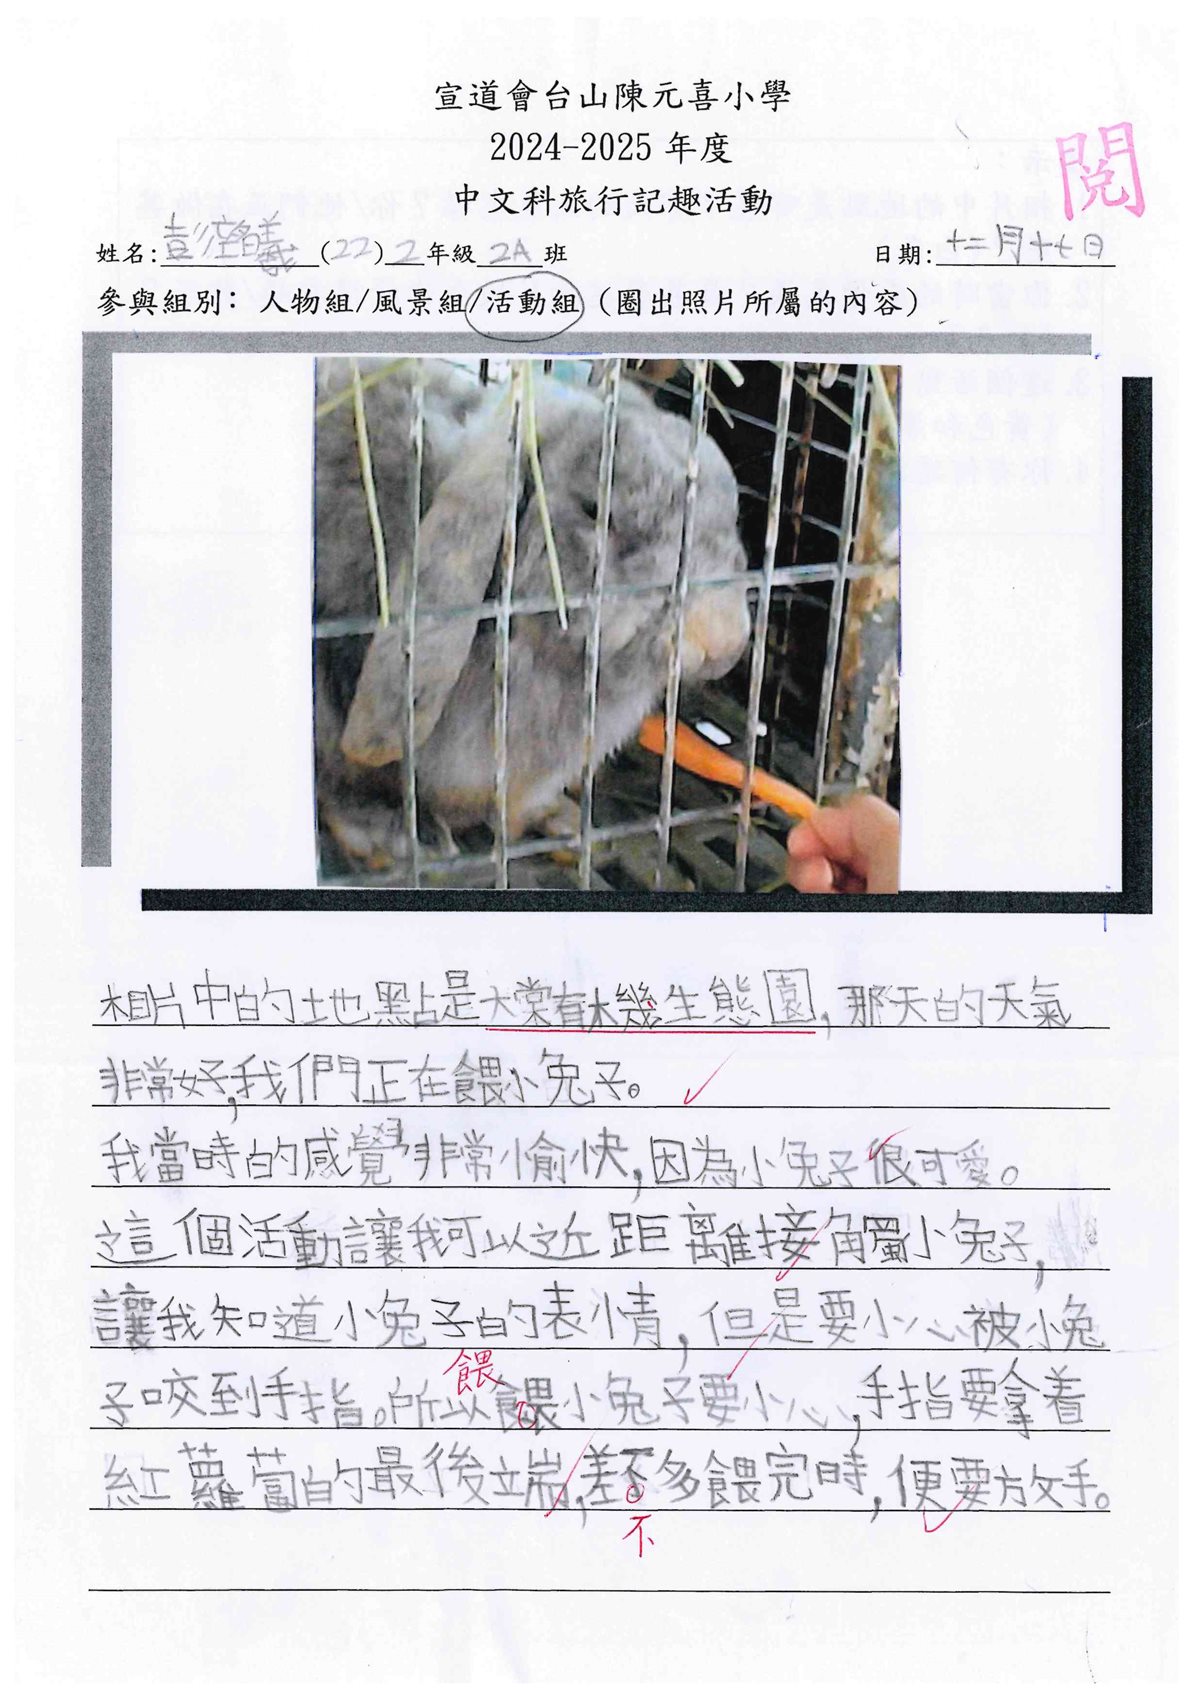 宣道會台山陳元喜小學
2024-2025 年度
中文科旅行記趣活動
閱
姓名:彭 曦 (22) 2 年級 2A 班 日期: 十二月十七日
參與組別: 人物組/風景組/活動組 (圈出照片所屬的內容)
相片中的地點是大棠有機生態園,那天的天氣
非常好,我們正在餵小兔子。
我當時的感覺非常愉快,因為小兔子很可愛。
這個活動讓我可以近距離接觸小兔子,
讓我知道小兔子的表情,但是要小心被小兔
餵
子咬到手指。所以餵小兔子要小心,手指要拿着
紅蘿蔔的最後立端,差不多餵完時,便要放手。
不